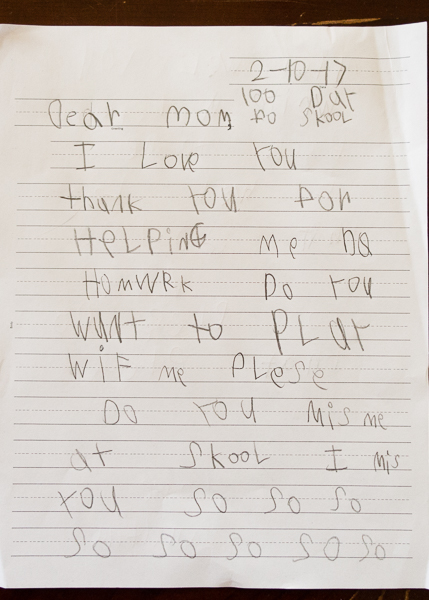 2-10-17
100 DaY
Dear Mom, FO SKOOL
I Love YOU
thank YOU FOR
HeLPiNG me DO
HOMWRK DO YOU
WaNT to PLaY
WiF me PLeSe
DO YOU Mis me
at SKOOL I Mis
YOU SO SO SO
SO SO SO SO SO